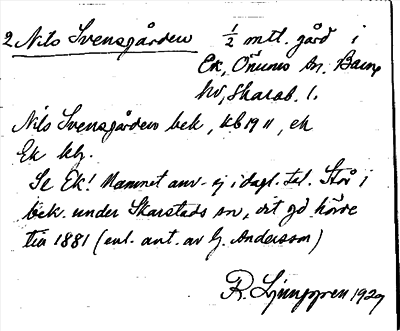 2 Nils Svensgården ½ mtl. gård i
Ek, Önums sn. Barne
hd, Skarab. l.
Nils Svensgården bek, kb 1911, ek
Ek kbg.
Se Ek! Namnet anv. ej i dagl. tal. Står i
bek. under Skarstads sn, dit gd hörde
till 1881 (enl. ant. av G. Andersson)
R. Ljunggren 1927